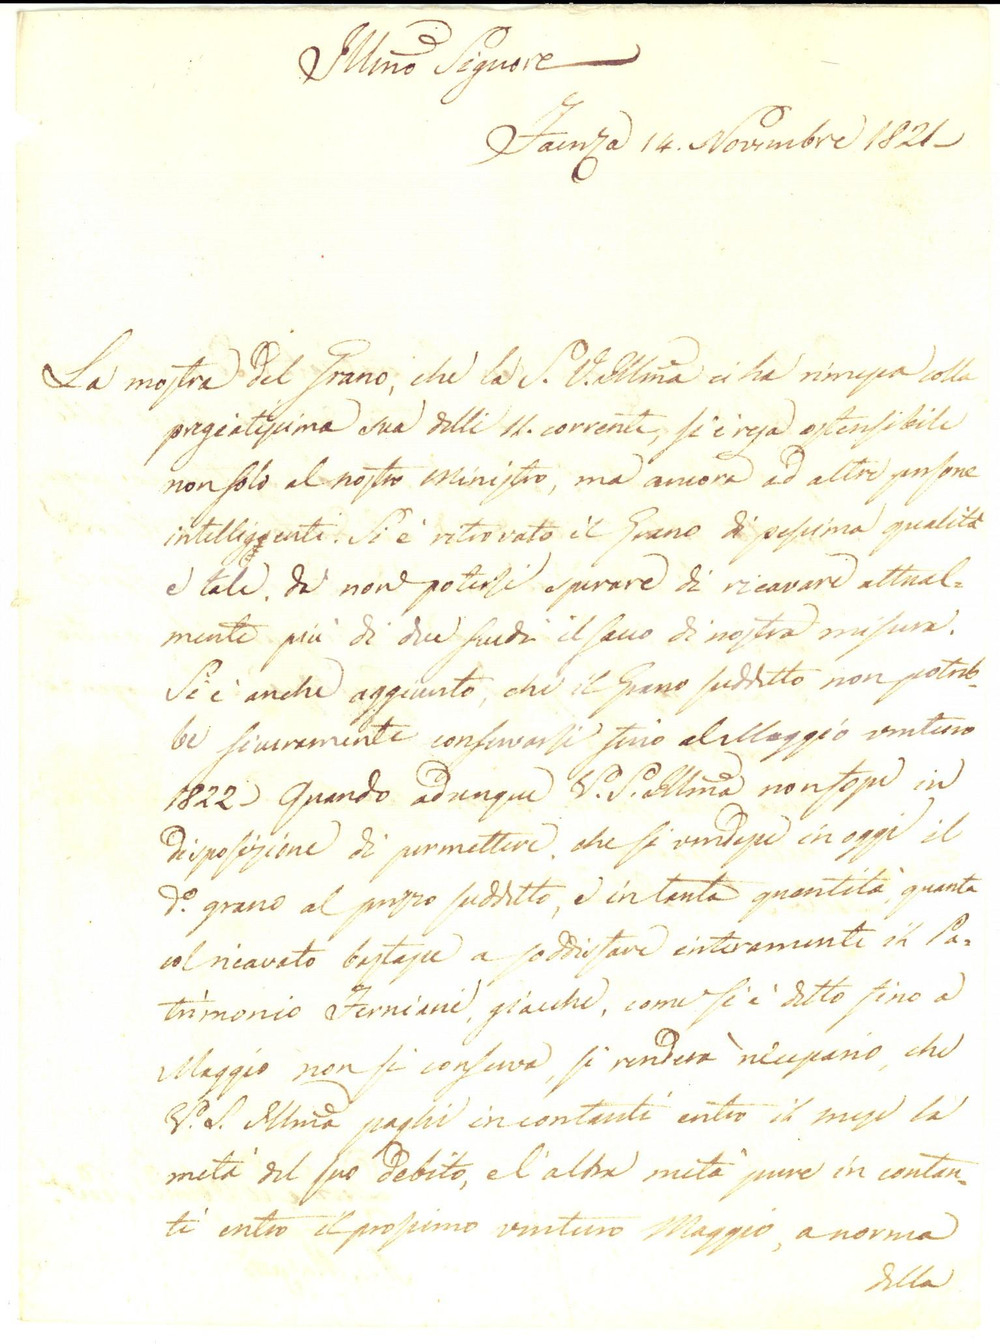 Illmo Signore
Faenza 14. Novembre 1821
La mostra del Grano, che la S. V. Illma ci ha rimessa colla
pregiatissima sua delli 11. corrente, si è resa ostensibile
non solo al nostro Ministro, ma ancora ad altre persone
intelliggenti. Si è ritrovato il Grano di pessima qualità
e tale, da non potersi sperare di ricavare attual=
mente più di due scudi il sacco di nostra misura.
Si è anche aggiunto, che il Grano suddetto non potreb=
be sicuramente conservarsi fino al Maggio venturo
1822. Quando adunque V. S. Illma non fosse in
disposizione di permettere, che si vendesse in oggi il
do. grano al prezzo suddetto, e in tanta quantità, quanta
col ricavato bastasse a soddisfare interamente il Pa=
trimonio Ferniani, giacchè, come si è detto fino a
Maggio non si conserva, si renderà necessario, che
V. S. Illma paghi in contanti entro il mese la
metà del suo debito, e l'altra metà pure in contan=
ti entro il prossimo venturo Maggio, a norma
della